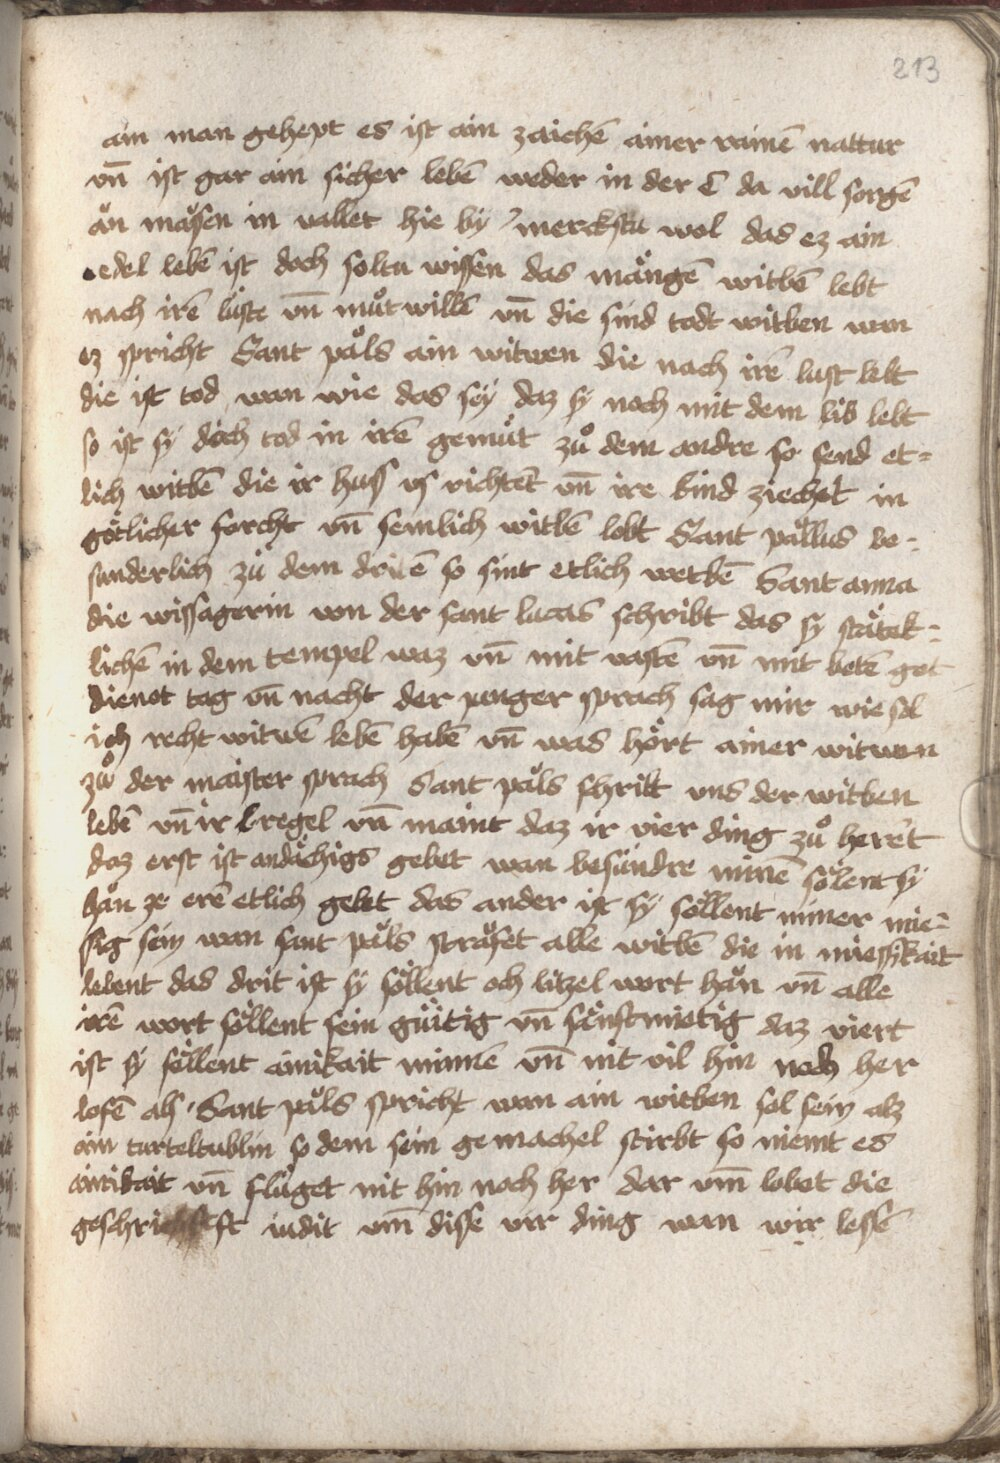 213
ain man gehept es ist ain zaichē ainer rainē nattur
vn̄ ist gar ain sicher lebē weder in der E da vill sorgē
aͤn maͤsen in vallet hie by merckstu wol das ez ain
edel lebē ist doch soltu wissen das maͤngē witbē lebt
nach irē luͤste vn̄ muͦtwillē vn̄ die sind todt witben wan
ez spricht Sant paͤls ain witwen die nach irē lust lebt
die ist tod wan wie das sey daz sy noch mit dem lib lebt
so ist sy doch tod in irē gemuͤt zuͦ dem andre so send et=
lich witbē die ir huss vs richtēt vn̄ ire kind ziechēt in
goͤtlicher forcht vn̄ semlich witbē lobt Sant paͤllus be=
sunderlich zuͦ dem dritē so sint etlich wetbē Sant anna
die wissagerin von der sant lucas schribt das sy staͤtek=
lichē in dem tempel waz vn̄ mit vastē vn̄ mit betē got
dienet tag vn̄ nacht der junger sprach sag mir wie sol
ich recht witwē lebē habē vn̄ was hoͤrt ainer witwen
zuͦ der maister sprach Sant paͤls schribt vns der witben
lebē vn̄ ir regel vn̄ maint daz ir vier ding zuͦ herēt
daz erst ist andaͤchigs gebet wan besundre minē soͤlent sy
haͤn ze erē etlich gebet das ander ist sy soͤllent nimer mie=
sig sein wan sant paͤls straͤfet alle witbē die in miessikait
lebent das drit ist sy soͤllent och litzel wort haͤn vn̄ alle
irē wort soͤllent sein guͤitig vn̄ saͤnftmietig daz viert
ist sy soͤllent ainikait minnē vn̄ nit vil hin noch her
lofē als Sant paͤls spricht wan ain witben sol sein alz
ain turteltublin so dem sein gemachel stirbt so niemt es
ainikait vn̄ fluͤget nit hin noch her dar vm̄ lobet die
geschrift iudit vm̄ disse vir ding wan wir lessē